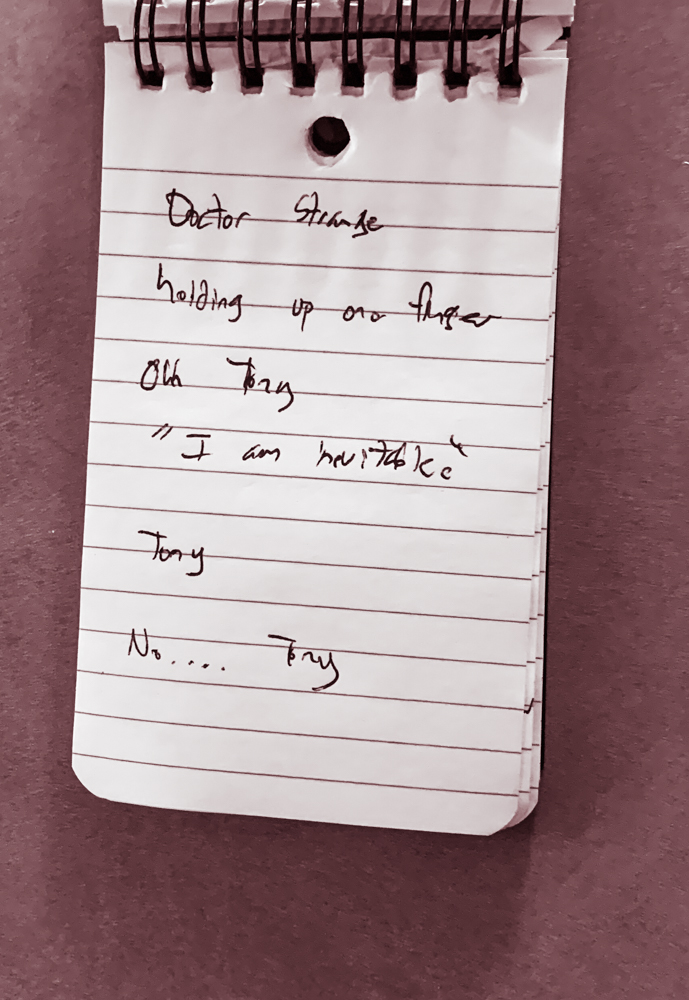 Doctor Strange
holding up one finger
Ohh Tony
"I am inevitable"
Tony
No.... Tony